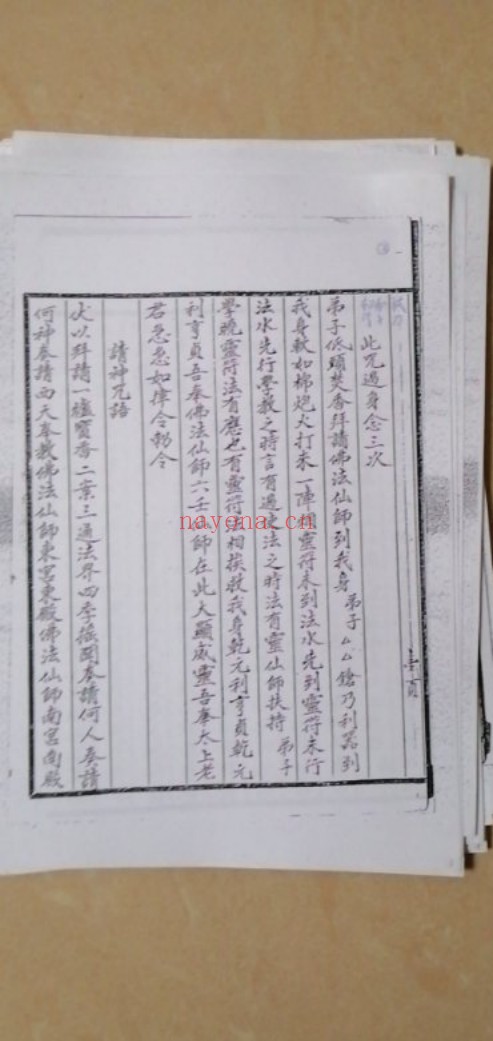 此咒過身念三次
弟子低頭焚香拜請佛法仙師到我身 弟子厶厶鎗乃利器到
我身軟如棉炮火打來一陣烟靈符未到法水先到靈符未行
法水先行學教之時言有過使法之時法有靈仙師扶持 弟子
學曉靈符法有應也有靈符法相挨救我身乾元利亨貞乾元
利亨貞吾奉佛法仙師六壬仙師在此大顯威靈吾奉太上老
君急急如律令勅令
請神咒語
伏以拜請一爐寶香二業三通法界四季搖聞奉請何人奉請
何神奉請西天奉教佛法仙師東宮東殿佛法仙師南宮南殿
壹頁
nayona.cn